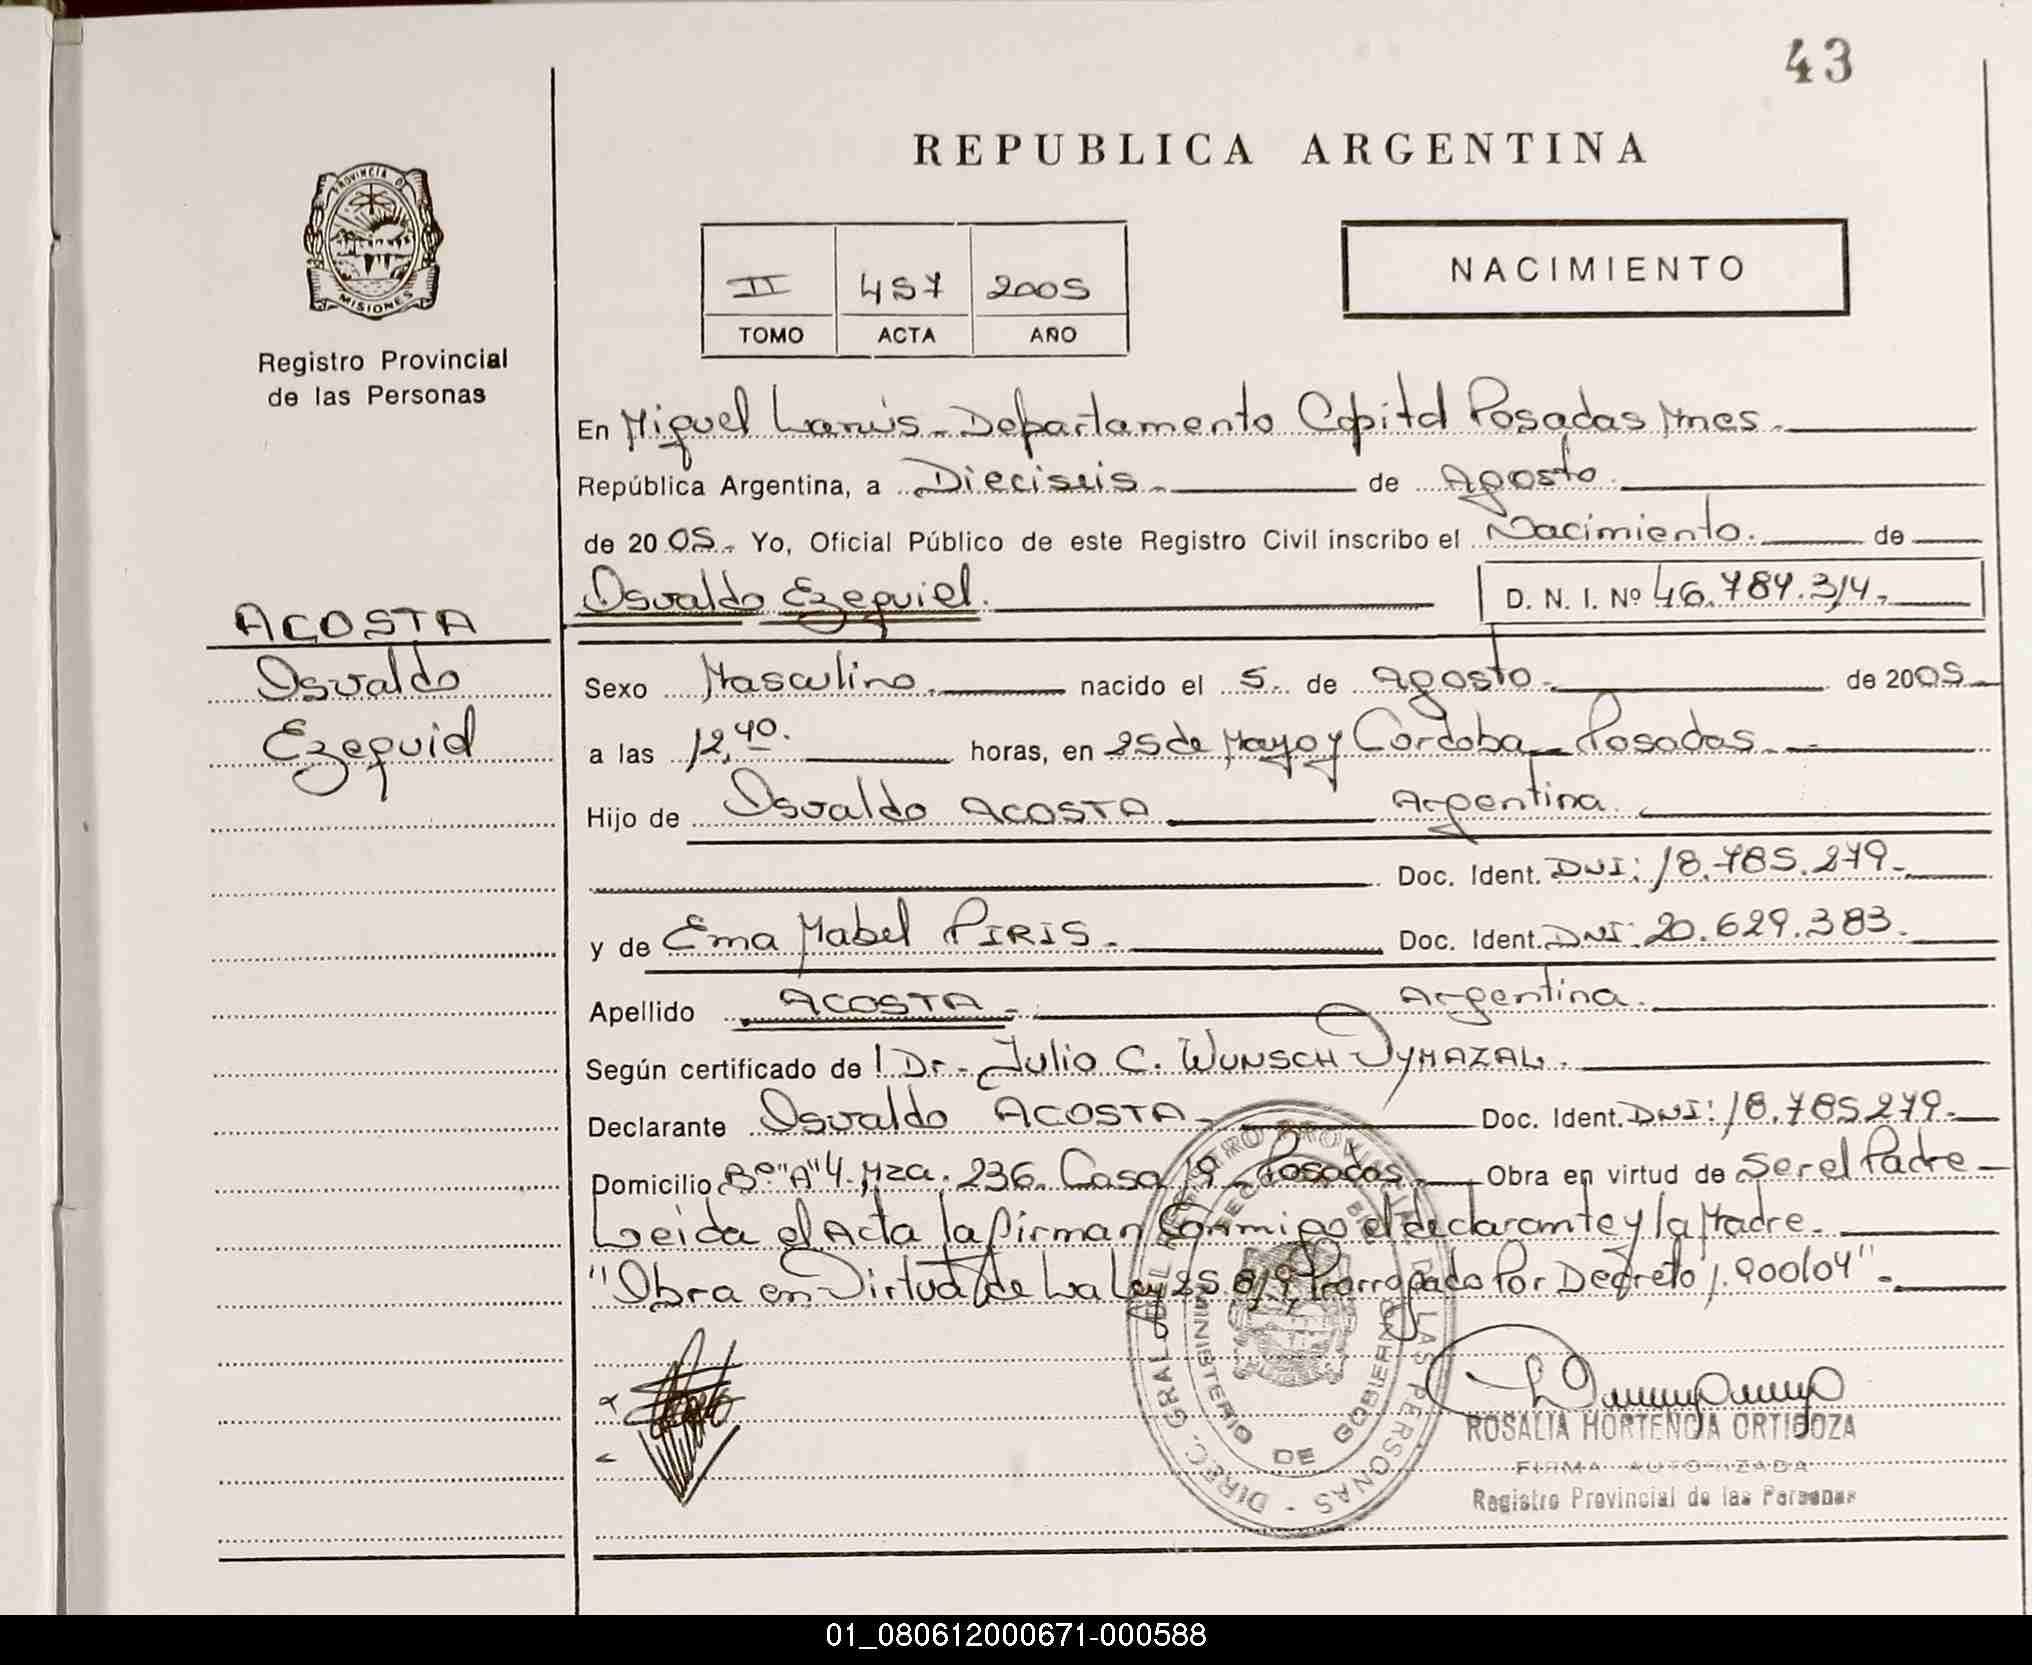 43
REPUBLICA ARGENTINA
PROVINCIA DE
MISIONES
Registro Provincial
de las Personas
NACIMIENTO
II 457 2005
TOMO ACTA AÑO
En Miguel Lanús - Departamento Capital Posadas Mnes.
República Argentina, a Dieciseis de Agosto
de 2005. Yo, Oficial Público de este Registro Civil inscribo el Nacimiento. de
Osvaldo Ezequiel. D. N. I. Nº 46.784.314.
ACOSTA
Osvaldo
Ezequiel
Sexo Masculino. nacido el 5. de Agosto. de 2005
a las 12,40. horas, en 25 de Mayo y Cordoba - Posadas.
Hijo de Osvaldo ACOSTA Argentina.
Doc. Ident. DNI: 18.785.279.
y de Ema Mabel PIRIS. Doc. Ident. DNI: 20.629.383.
Apellido ACOSTA. Argentina.
Según certificado de l Dr. Julio C. WUNSCH DYMAZAL.
Declarante Osvaldo ACOSTA. Doc. Ident. DNI: 18.785.279.
Domicilio Bº "A" 4. Mza. 236. Casa 19 - Posadas. Obra en virtud de Ser el Padre
Leida el Acta la firman Conmigo el declarante y la Madre.
"Obra en Virtud de La Ley 25.819 Prorrogado Por Decreto 1.900/04".
DIREC. GRAL. DEL REGISTRO PROVINCIAL DE LAS PERSONAS
MINISTERIO DE GOBIERNO
ROSALIA HORTENCIA ORTIGOZA
FIRMA AUTORIZADA
Registro Provincial de las Personas
01_080612000671-000588